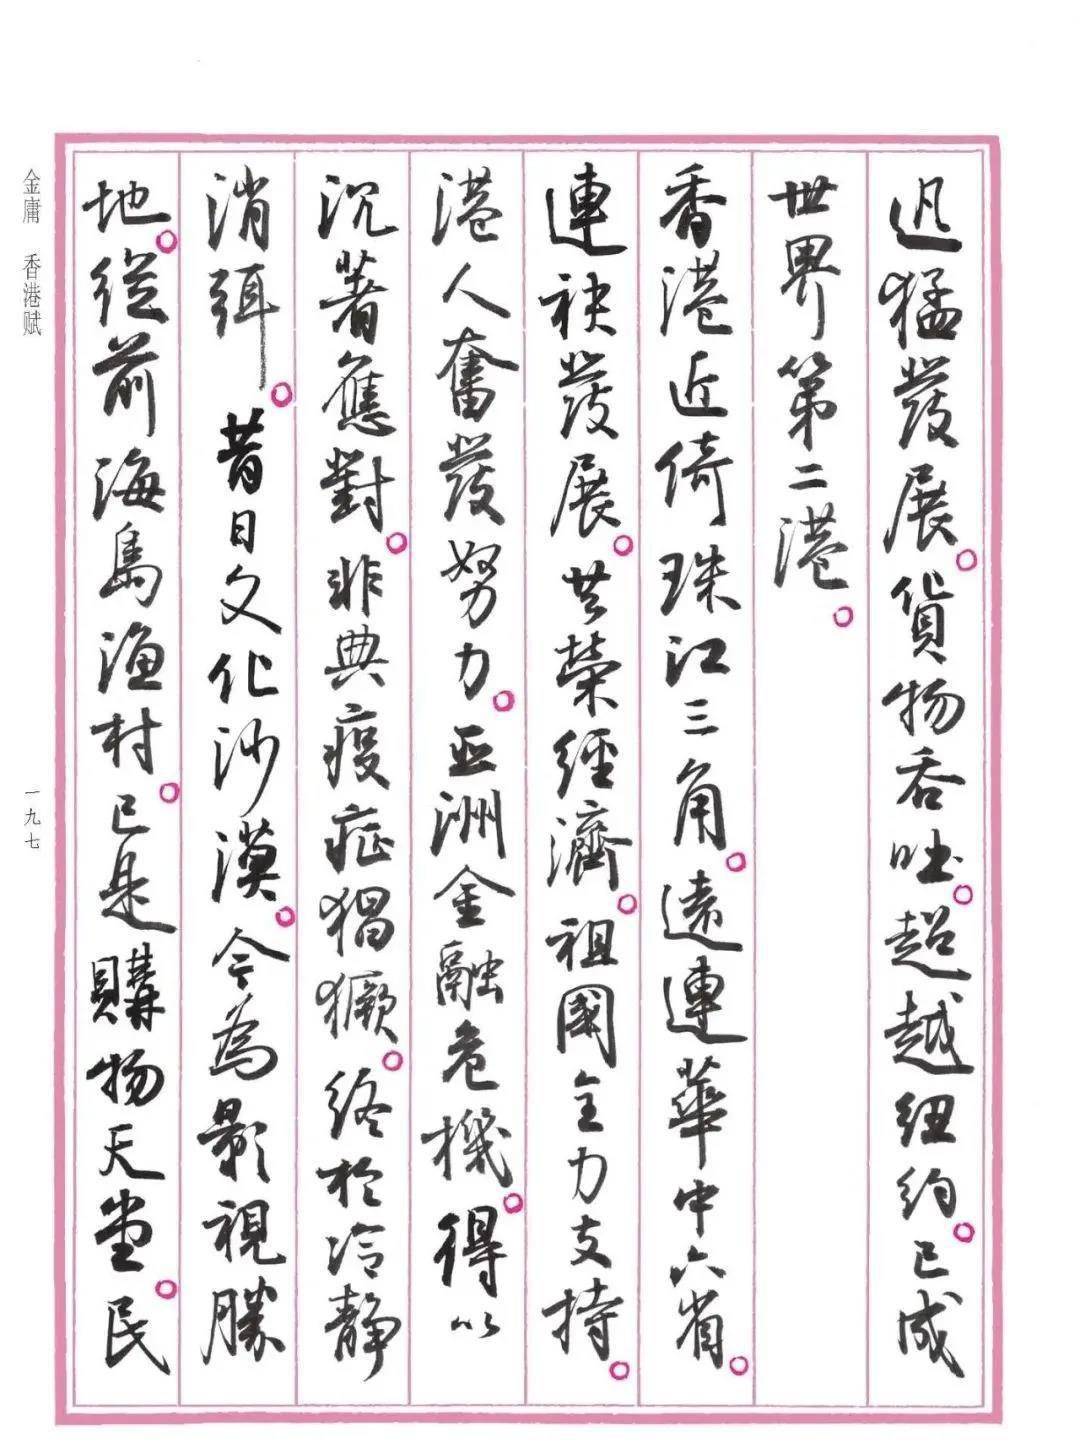 迅猛發展。貨物吞吐。超越紐約。已成
世界第二港。
香港近倚珠江三角。遠連華中六省。
連袂發展。共榮經濟。祖國全力支持。
港人奮發努力。亞洲金融危機。得以
沉著應對。非典疫症猖獗。終於冷靜
消弭。昔日文化沙漠。今為影視勝
地。從前海島漁村。已是購物天堂。民
金庸 香港赋
一九七